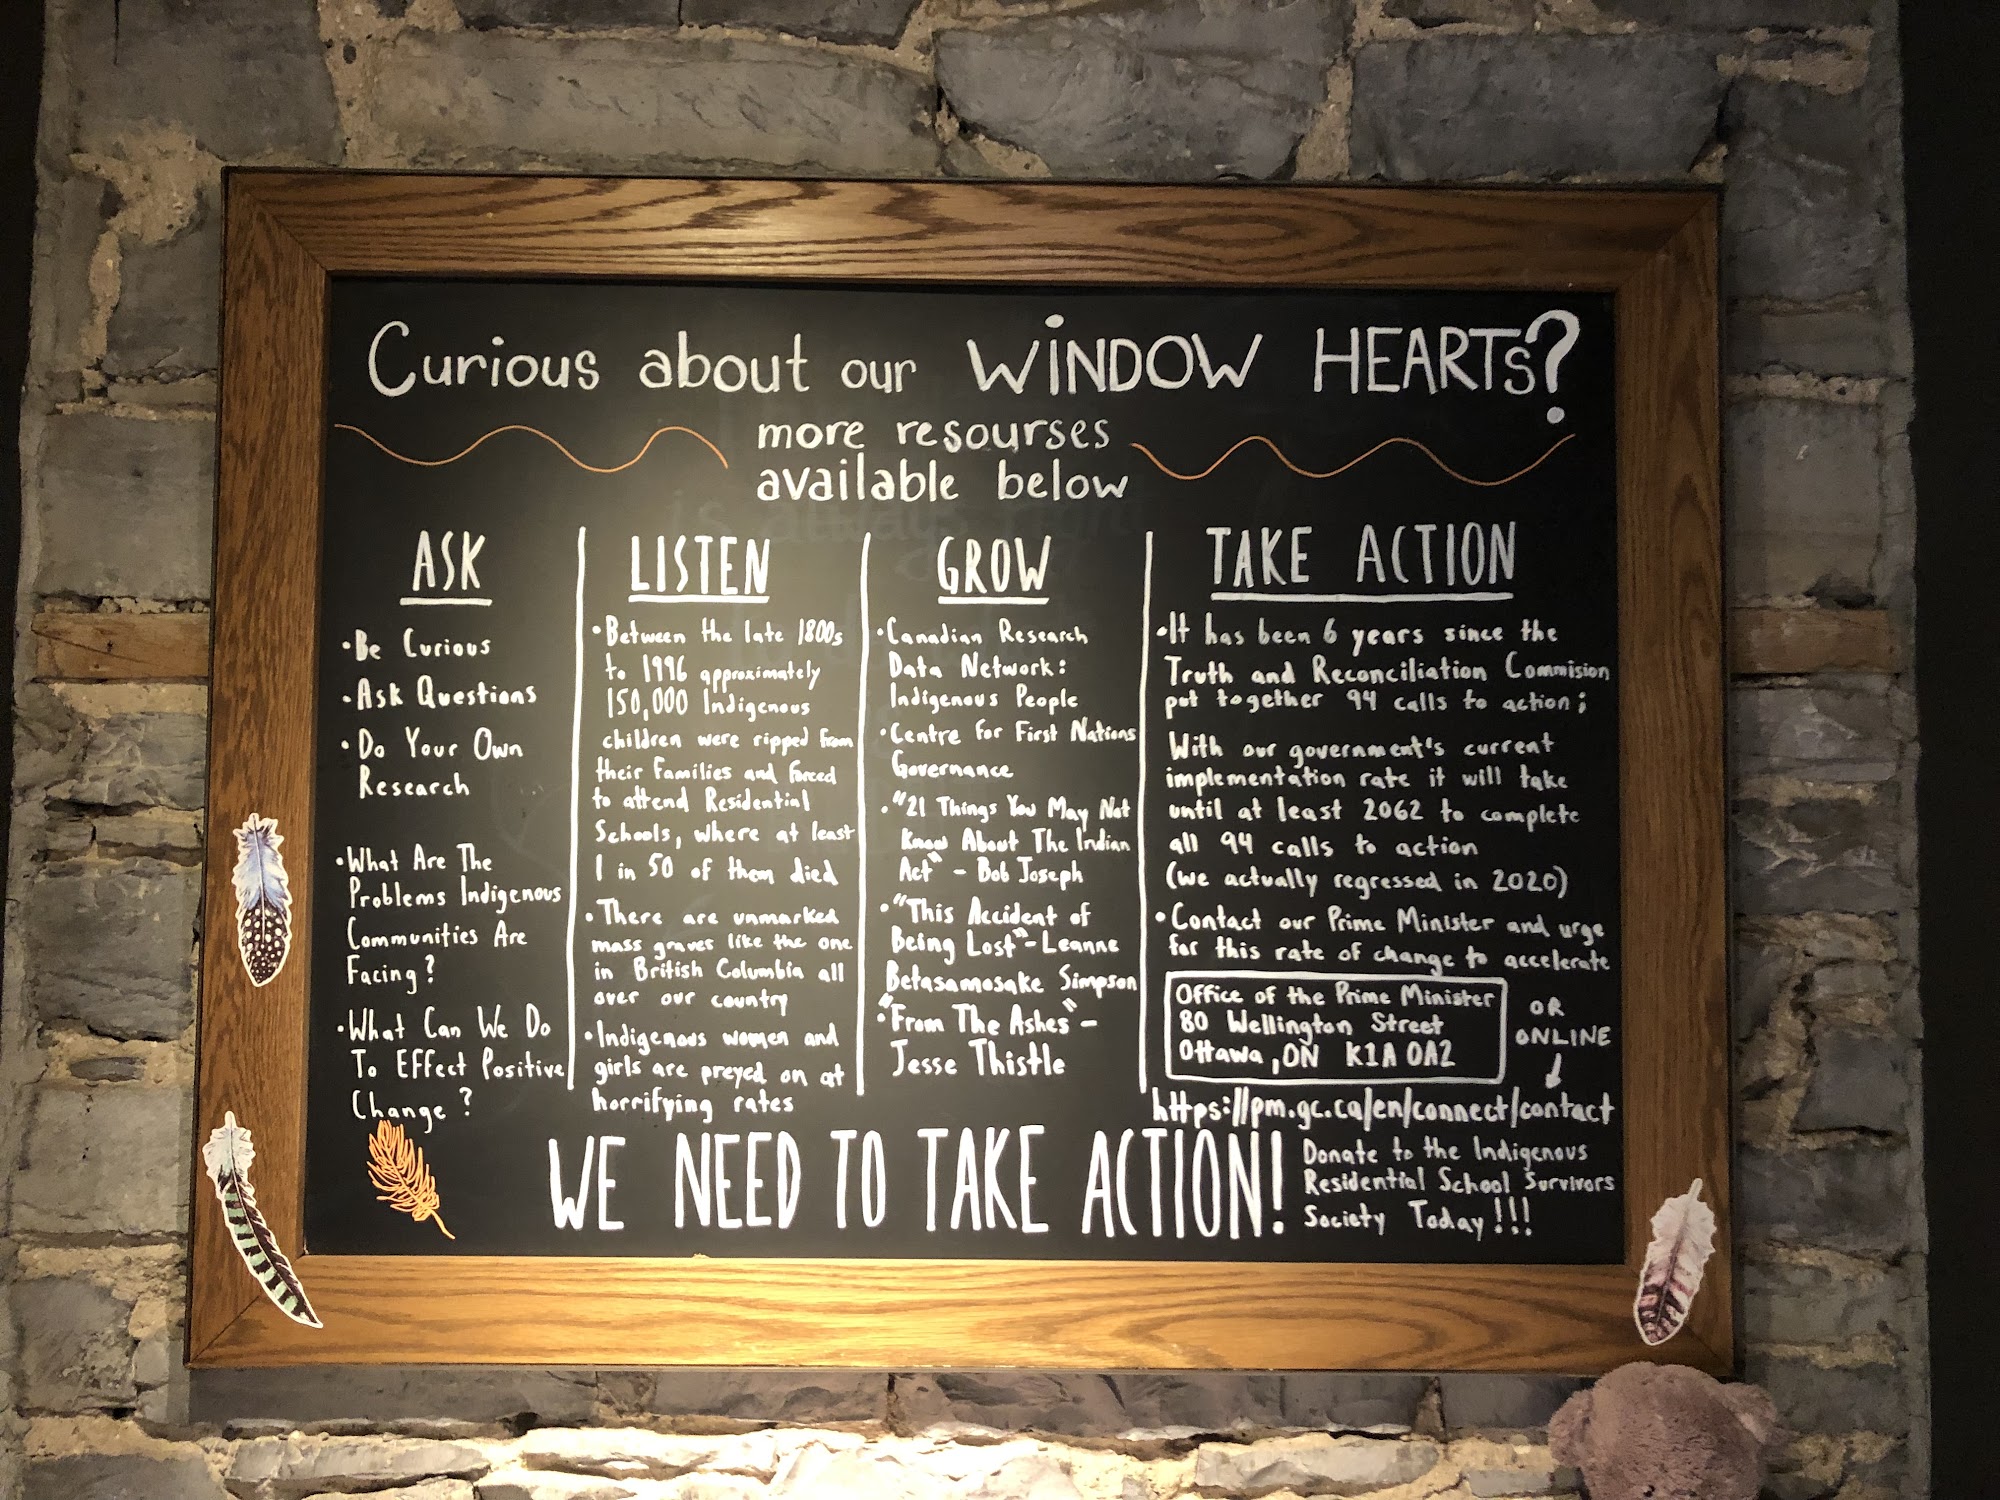 Curious about our WiNDOW HEARTs?
more resourses
available below
ASK
• Be Curious
• Ask Questions
• Do Your Own
Research
• What Are The
Problems Indigenous
Communities Are
Facing?
• What Can We Do
To Effect Positive
Change?
LISTEN
• Between the late 1800s
to 1996 approximately
150,000 Indigenous
children were ripped from
their families and forced
to attend Residential
Schools, where at least
1 in 50 of them died
• There are unmarked
mass graves like the one
in British Columbia all
over our country
• Indigenous women and
girls are preyed on at
horrifying rates
GROW
• Canadian Research
Data Network:
Indigenous People
• Centre for First Nations
Governance
• "21 Things You May Not
Know About The Indian
Act" - Bob Joseph
• "This Accident of
Being Lost" - Leanne
Betasamosake Simpson
• "From The Ashes" -
Jesse Thistle
TAKE ACTION
• It has been 6 years since the
Truth and Reconciliation Commision
put together 94 calls to action;
With our government's current
implementation rate it will take
until at least 2062 to complete
all 94 calls to action
(we actually regressed in 2020)
• Contact our Prime Minister and urge
for this rate of change to accelerate
Office of the Prime Minister
80 Wellington Street
Ottawa, ON K1A 0A2
OR
ONLINE
https://pm.gc.ca/en/connect/contact
WE NEED TO TAKE ACTION!
Donate to the Indigenous
Residential School Survivors
Society Today!!!